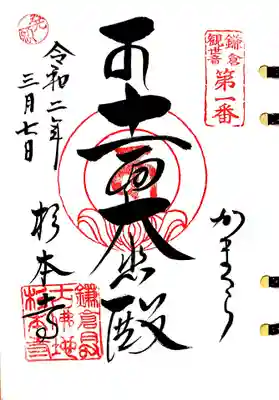 鎌倉
観世音
第一番
かまくら
十一面大悲殿
令和二年
三月七日
杉本寺
鎌倉
杉本寺